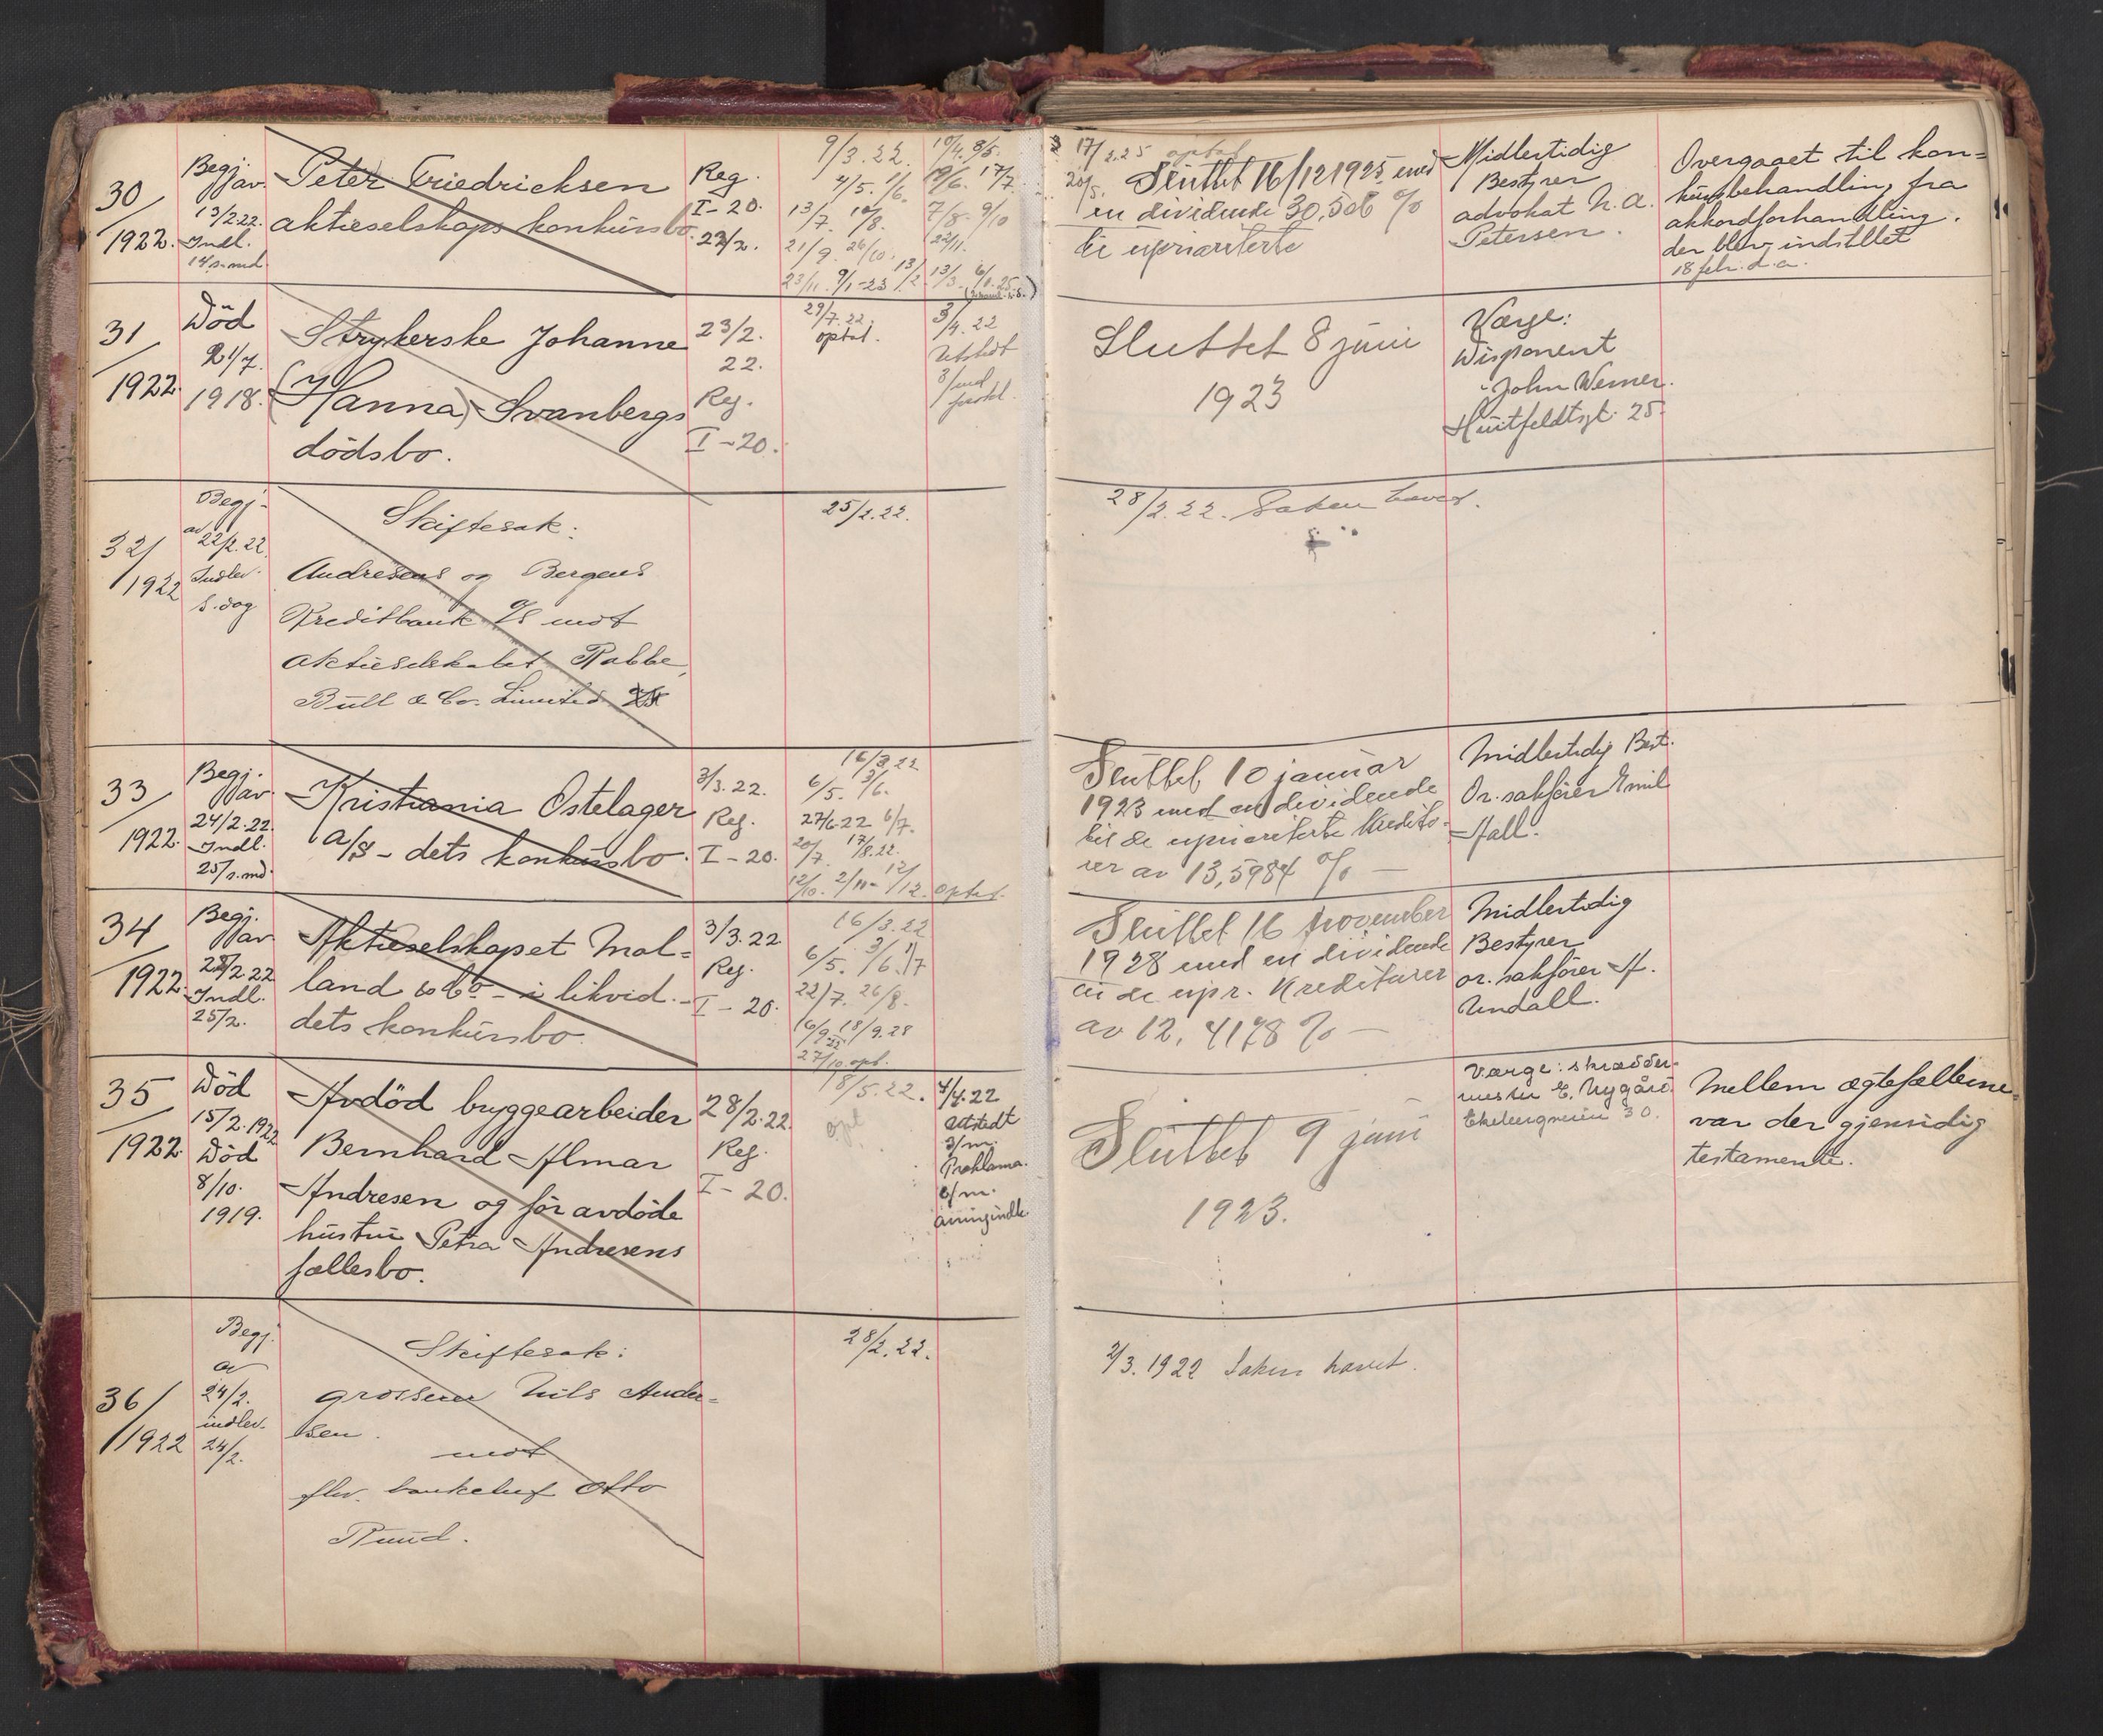 30/1922.
Begj. av.
13/2.22.
Indl.
14/s.md.
Peter Friedrichsen
aktieselskaps konkursbo.
Reg.
I-20.
23/2.
9/3.22.
4/5. 1/6.
13/7. 10/8.
21/9. 26/10.
23/11. 9/1-23
17/7.
7/8. 9/10
22/11.
13/3.
17/2.25 optat
Sluttet 16/12 1925 med
en dividende 30,506 %
til uprioriterte
Midlertidig
Bestyrer
advokat N. A.
Petersen.
Overgaaet til kon=
kursbehandling fra
akkordforhandling.
der blev indstillet
18 febr. d.a.
31/1922.
Död
21/7.
1918.
Strykerske Johanne
(Hanna) Svanbergs
dödsbo.
23/2.
22.
Reg.
I-20.
29/7.22.
optat.
3/4.22
Utstedt
3/md
prokl.
Sluttet 8 juni
1923
Værge:
Disponent
John Werner.
Huitfeldtsgt. 25.
32/1922
Begj.
av
22/2.22.
Indlev.
s. dag
Skiftesak:
Andresens og Bergens
Kreditbank A/S mot
aktieselskabet Rabbe,
Bull & Co. Limited
25/2.22.
28/2.22. Saken hævet.
33/1922.
Begj. av.
24/2.22.
Indl.
25/s.md.
Kristiania Ostelager
A/S - dets konkursbo.
3/3.22.
Reg.
I-20.
16/3.22
6/5. 3/6.
27/6.22 6/7.
20/7. 17/8.22.
12/10. 2/11- 1/12. 12/12 optat.
Sluttet 10 januar
1923 med en dividende
til de uprioriterte kredito-
rer av 13,5984 % —
Midlertidig Best.
Or. sakförer Emil
Hall.
34/1922.
Begj. av
Indl.
25/2.
Aktieselskapet Mol=
land & Co - i likvid. -
dets konkursbo.
3/3.22
Reg.
I-20.
16/3.22
6/5. 3/6.
22/7. 26/8.
18/9.28
27/10 opt.
Sluttet 16 november
1928 med en dividende
til de upr. Kreditorer
av 12,4178 % —
Midlertidig
Bestyrer
or. sakförer H.
Undall.
35/1922.
Död
15/2.1922
Död
8/10.
1919.
Avdöd byggearbeider
Bernhard Hlmar
Andresen og før avdöde
hustru Petra Andresens
fællesbo.
28/2.22.
Reg.
I-20.
18/5.22.
opt
4/4.22
utstedt
3/m.
Proklama.
6/m.
arvingindk.
Sluttet 9 juni
1923.
Værge: skrædder-
mester E. Nygård
Ekebergveien 30.
Mellem ægtefællerne
var der gjensidig
testamente.
36/1922
Begj.
av
24/2.
indlev.
24/2.
Skiftesak:
grosserer Nils Ander=
sen.
mot
fhv. bankchef Otto
Ruud.
28/2.22.
2/3.1922 Saken hævet.